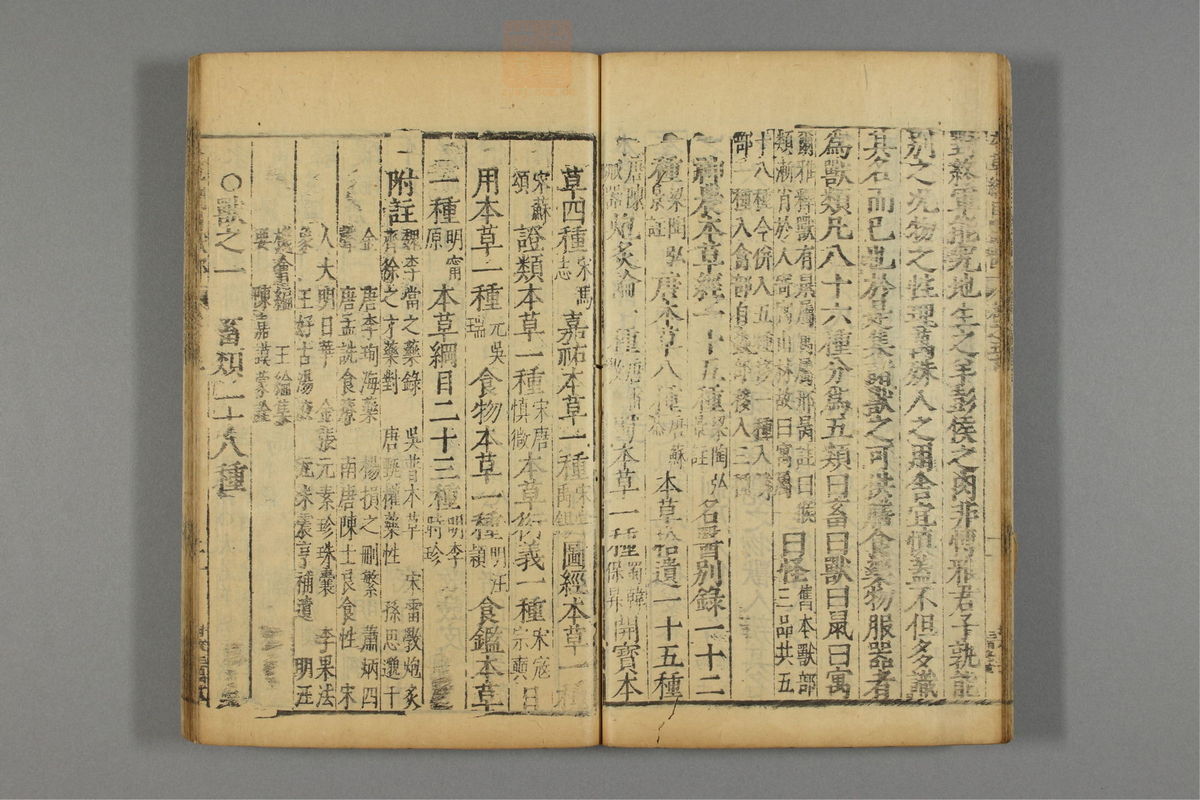 對終軍能究地生之羊彭侯之肉非博雅君子孰能
別之况物之性理萬殊人之用舍宜慎蓋不但多識
其名而已也於是集諸獸之可供膳食藥物服器者
為獸類凡八十六種分為五類曰畜曰獸曰鼠曰寓
爾雅釋獸有鼠屬寓屬邢昺註曰猴
類漸肖於人寄寓山林故曰寓屬
曰怪
舊本獸部三品共五
十八種今併入五種移一種入
部一種入禽部自蟲部移入三種
神農本草經一十五種
梁陶弘景註
名醫別錄一十二
種
梁陶弘景註
唐本草八種
唐蘇恭
本草拾遺一十五種
唐陳藏器
炮炙論一種
蜀本草一種
蜀韓保昇
開寶本
草四種
宋馬志
嘉祐本草一種
宋掌禹錫
圖經本草一種
宋蘇頌
證類本草一種
宋唐慎微
本草衍義一種
宋寇宗奭
日
用本草一種
元吳瑞
食物本草一種
明汪穎
食鑑本草
一種
明甯原
本草綱目二十三種
明李時珍
附註
魏李當之藥錄 吳普本草 宋雷斅炮炙
齊徐之才藥對 唐甄權藥性 孫思邈千
金 唐李珣海藥 楊損之刪繁 蕭炳四
聲 唐孟詵食療 南唐陳士良食性 宋
人大明日華 金張元素珍珠囊 李果法
象 王好古湯液 元朱震亨補遺 明汪
機會編 王綸集
要 陳嘉謨蒙筌
○獸之一 畜類二十八種